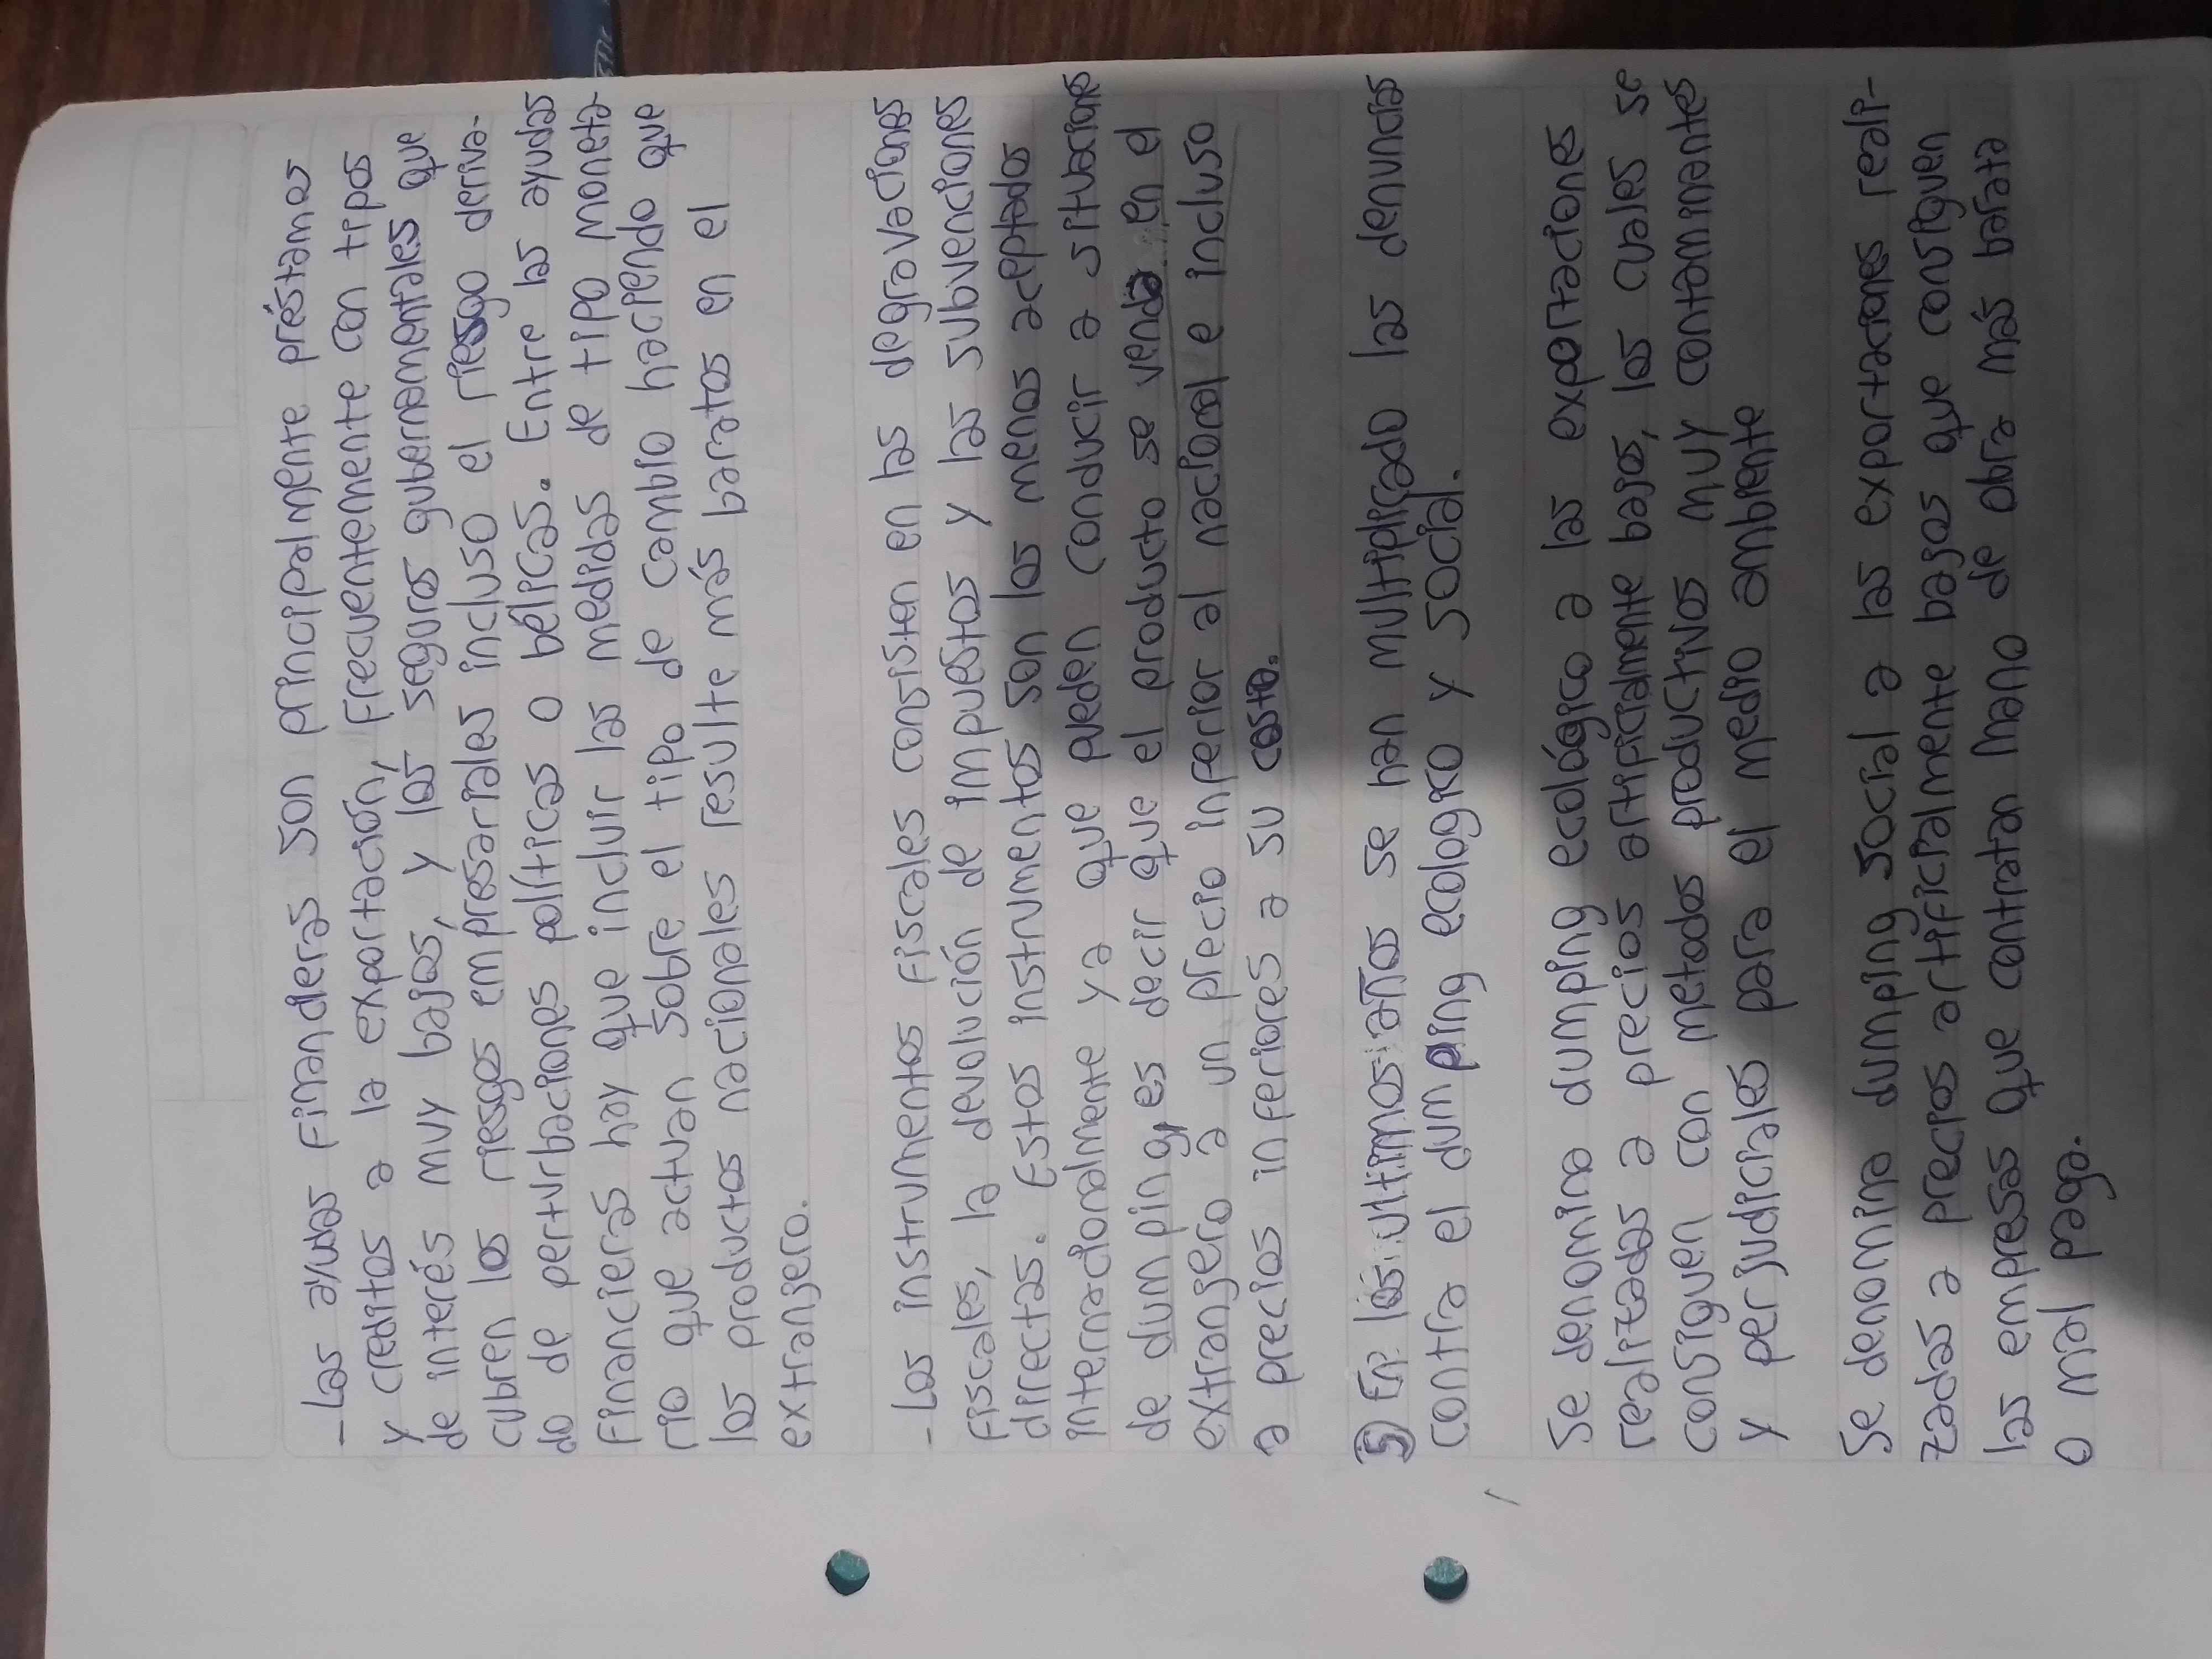 - Las ayudas Financieras son principalmente préstamos
y creditos a la exportación, frecuentemente con tipos
de interés muy bajos, y los seguros gubernamentales que
cubren los riesgos empresariales incluso el riesgo deriva-
do de perturbaciones políticas o bélicas. Entre las ayudas
Financieras hay que incluir las medidas de tipo moneta-
rio que actuan sobre el tipo de cambio haciendo que
los productos nacionales resulte más baratos en el
extranjero.
- Los instrumentos Fiscales consisten en las degravaciones
Fiscales, la devolución de impuestos y las subvenciones
directas. Estos instrumentos son los menos aceptados
internacionalmente ya que pueden conducir a situaciones
de dumping, es decir que el producto se venda en el
extranjero a un precio inferior al nacional e incluso
a precios inferiores a su costo.
5) En los ultimos años se han multiplicado las denuncias
contra el dumping ecologico y social.
Se denomina dumping ecológico a las exportaciones
realizadas a precios artificialmente bajos, los cuales se
consiguen con metodos productivos muy contaminantes
y perjudiciales para el medio ambiente
Se denomina dumping social a las exportaciones reali-
zadas a precios artificialmente bajos que consiguen
las empresas que contratan mano de obra más barata
o mal paga.